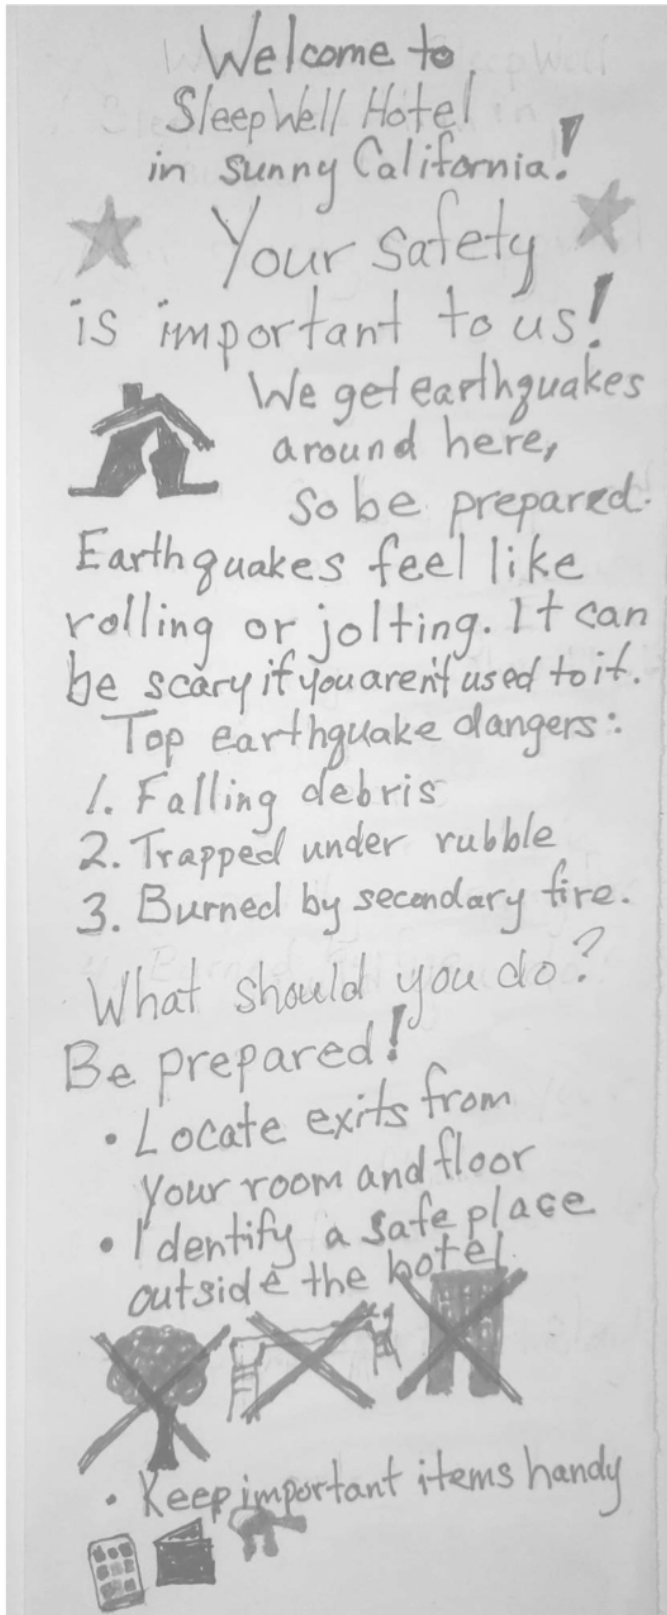 Welcome to
SleepWell Hotel
in sunny California!
Your safety
is important to us!
We get earthquakes
around here,
so be prepared.
Earthquakes feel like
rolling or jolting. It can
be scary if you aren't used to it.
Top earthquake dangers:
1. Falling debris
2. Trapped under rubble
3. Burned by secondary fire.
What should you do?
Be prepared!
• Locate exits from
your room and floor
• Identify a safe place
outside the hotel.
• Keep important items handy